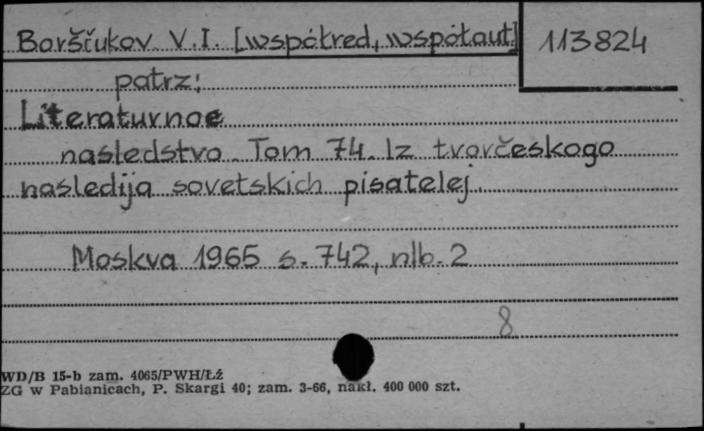 Borščukov V.I. [współred, współaut]
113824
patrz:
Literaturnoe
nasledstvo. Tom 74. Iz tvorčeskogo
nasledija sovetskich pisatelej.
Moskva 1965 s. 742, nlb. 2
8
WD/B 15-b zam. 4065/PWH/Łż
ZG w Pabianicach, P. Skargi 40; zam. 3-66, nakł. 400 000 szt.